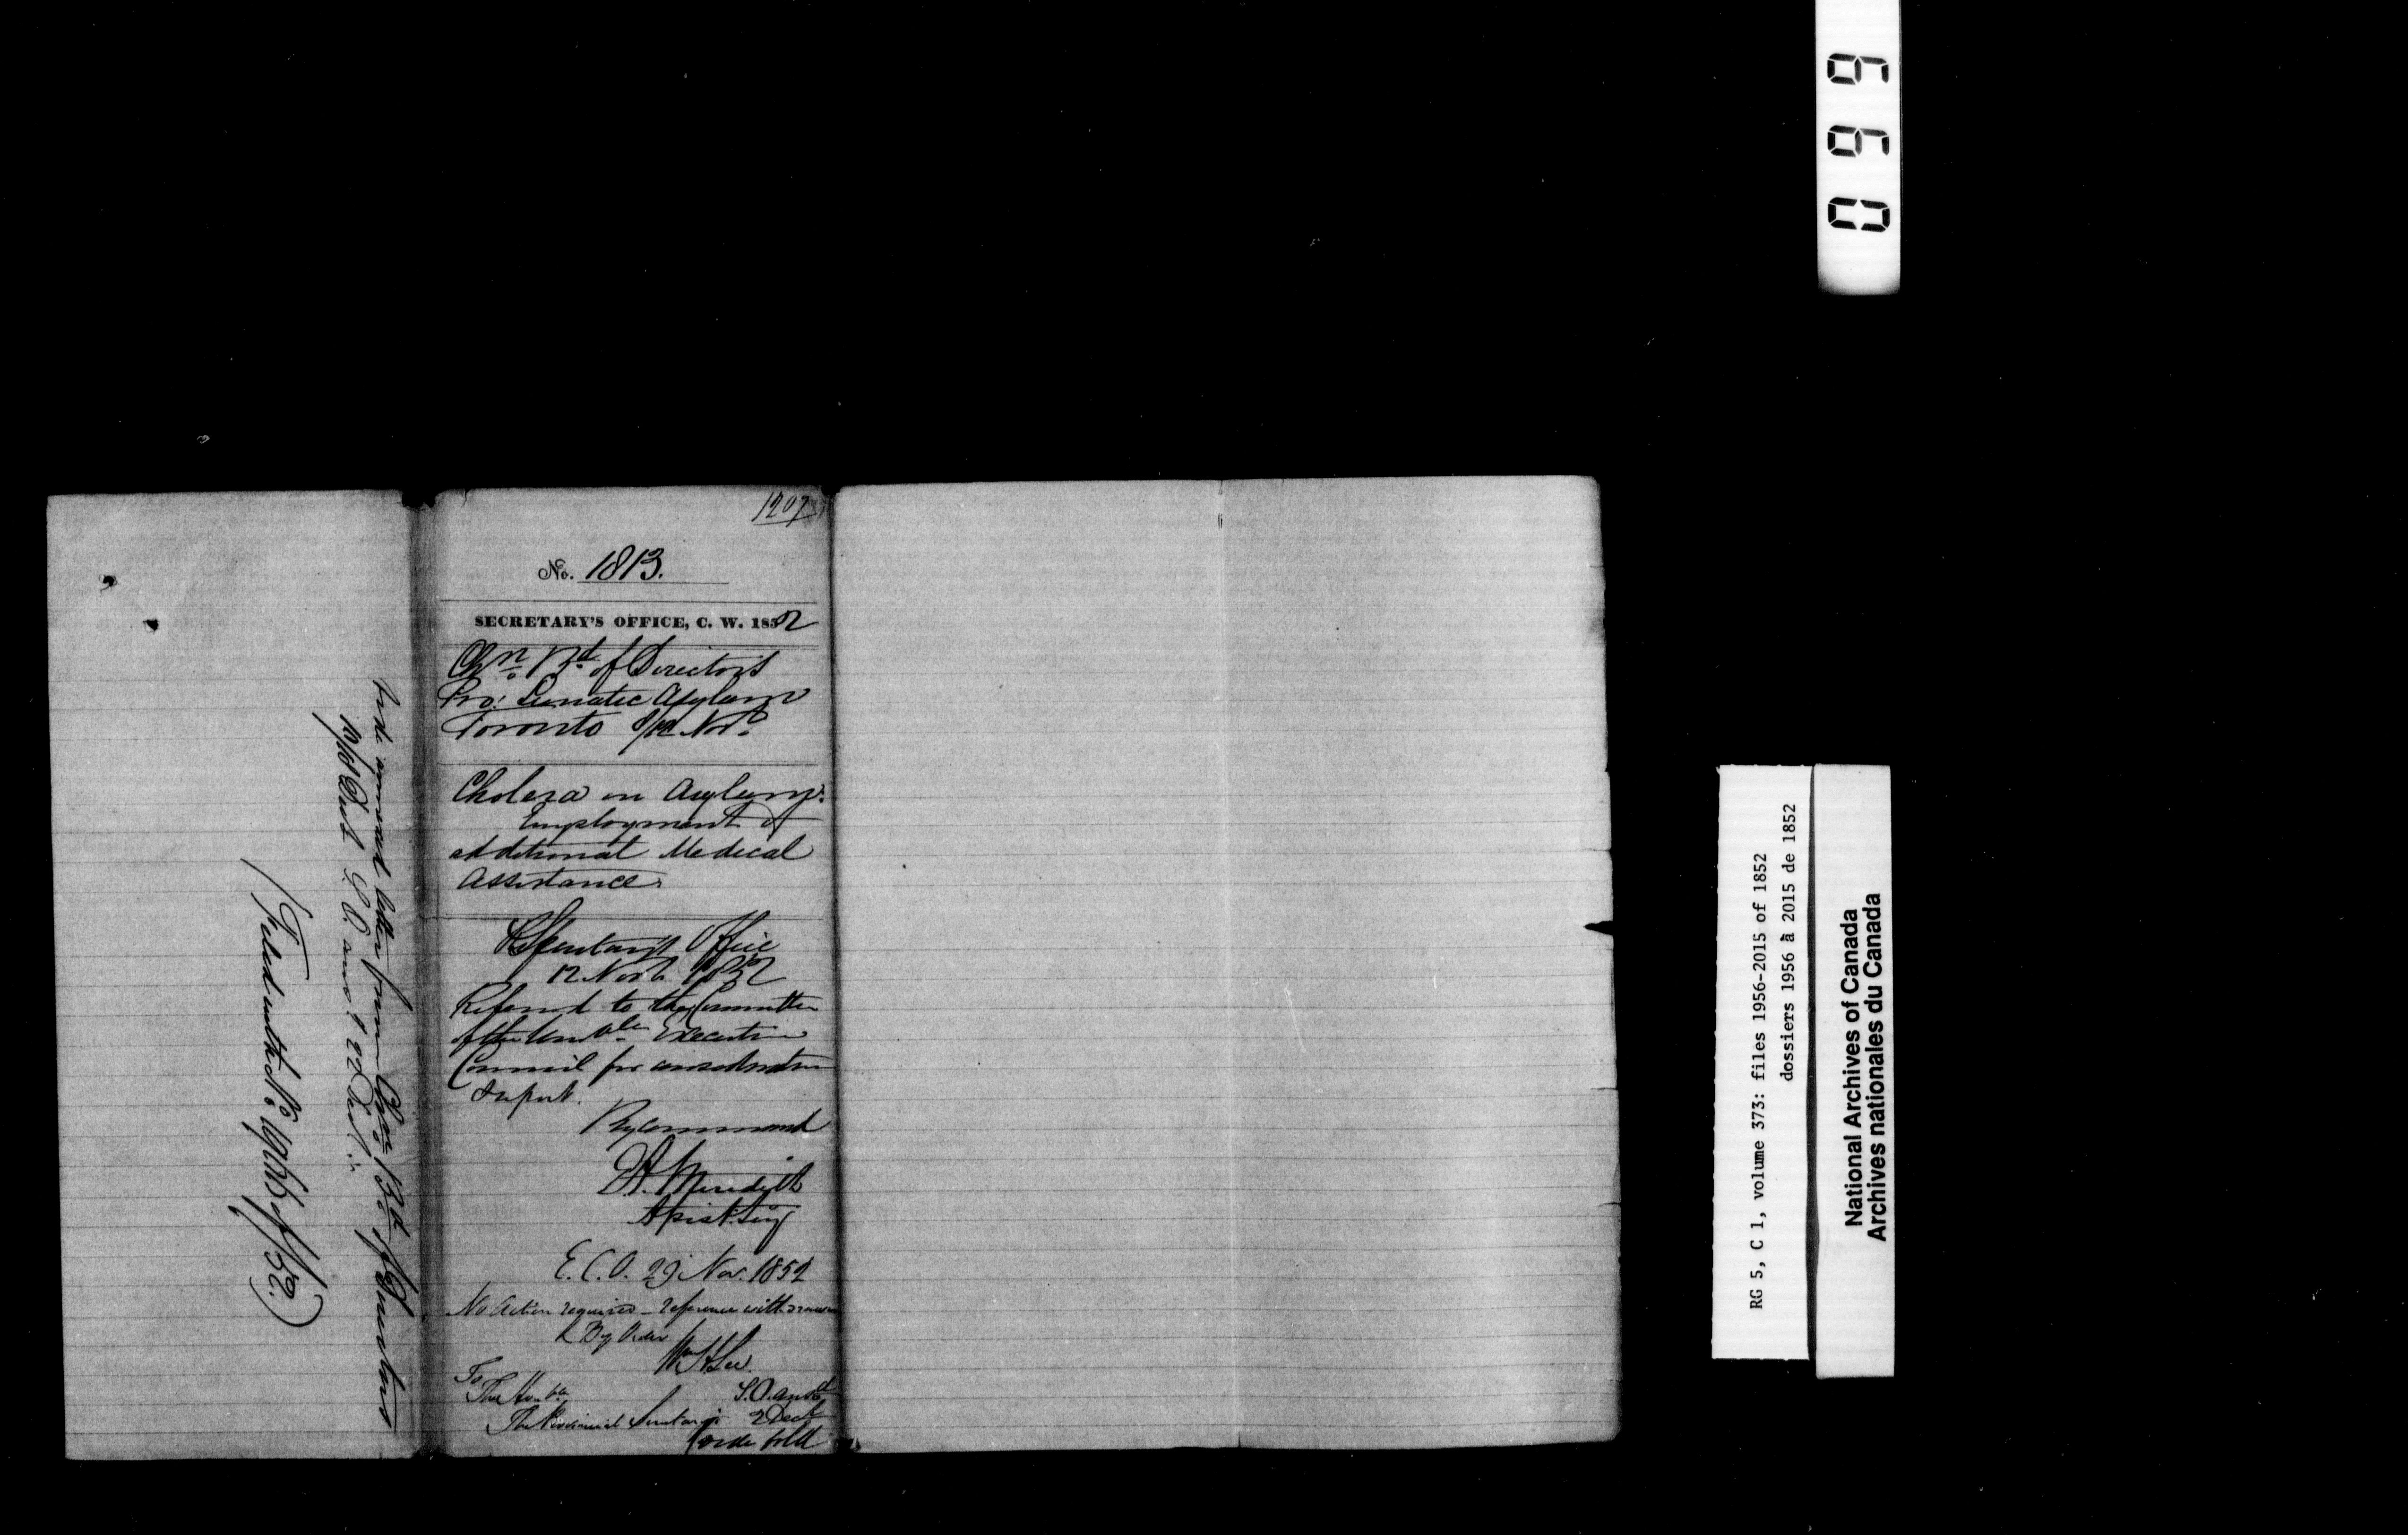 1207
No. 1813.
SECRETARY'S OFFICE, C. W. 1852
Chn. Bd. of Directors
Pro: Lunatic Asylum
Toronto 9/12 Novr.
Cholera in Asylum.
Employment of
additional Medical
Assistance.
Secretary's Office
12 Novr. 1852
Referred to the Committee
of the Honble. Executive
Council for consideration
& report.
By Command
E. A. Meredith
Asst. Secy
E. C. O. 29 Nov. 1852
No Action required - reference withdrawn
By Order
Wm H Lee
To
The Honble
The Provincial Secretary
S. O. ansd
2 Decr
vide fold
vide annexed letter from Chn. Bd. of Directors
S. O. ansd. 22 Decr.
(Filed with No. 1965 of /52.)
RG 5, C 1, volume 373: files 1956-2015 of 1852
dossiers 1956 à 2015 de 1852
National Archives of Canada
Archives nationales du Canada
0 6 6